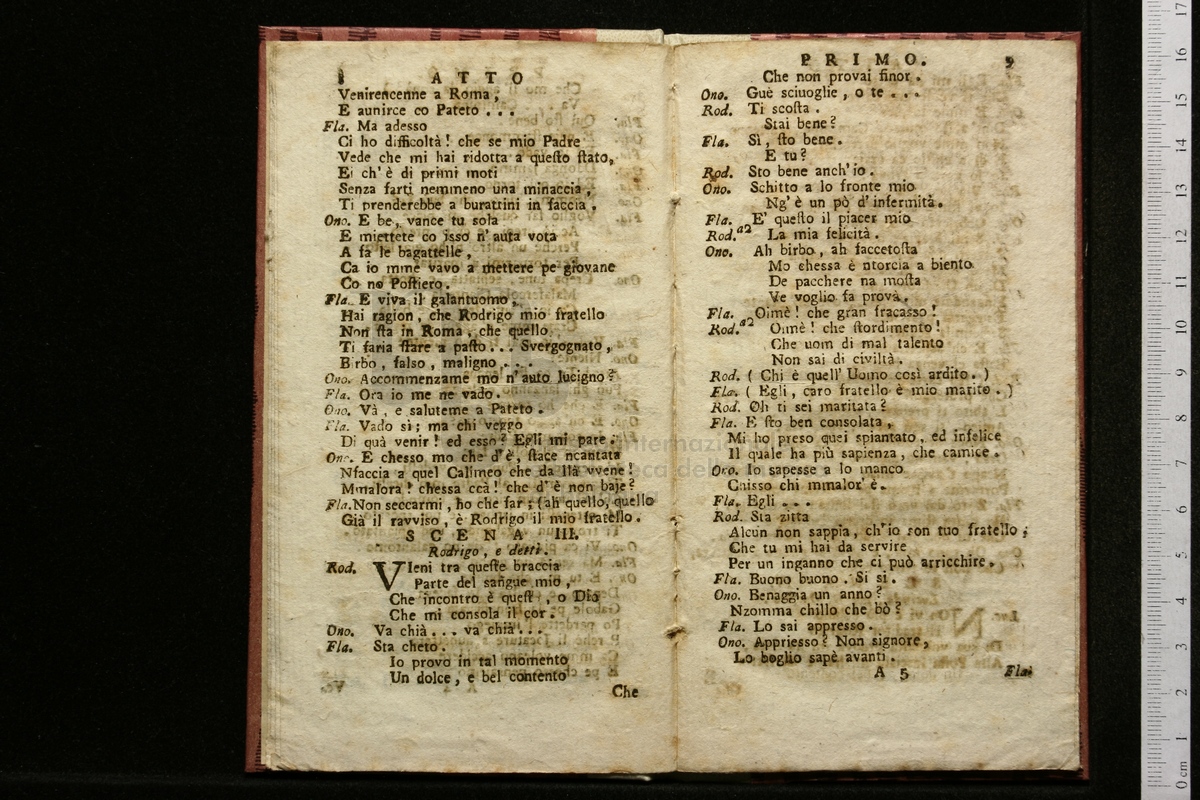 8 ATTO
Venirencenne a Roma,
E aunirce co Pateto . . .
Fla. Ma adesso
Ci ho difficoltà! che se mio Padre
Vede che mi hai ridotta a questo stato,
Ei ch'è di primi moti
Senza farti nemmeno una minaccia,
Ti prenderebbe a burattini in faccia.
Ono. E be, vance tu sola
E miettete co isso n'auta vota
A fà le bagattelle,
Ca io mme vavo a mettere pe giovane
Co no Postiero.
Fla. E viva il galantuomo,
Hai ragion, che Rodrigo mio fratello
Non sta in Roma, che quello
Ti faria stare a pasto . . . Svergognato,
Birbo, falso, maligno . . .
Ono. Accommenzame mo n'auto lucigno?
Fla. Ora io me ne vado.
Ono. Và, e saluteme a Pateto.
Fla. Vado sì; ma chi veggo
Di quà venir! ed esso? Egli mi pare.
Ono. E chesso mo che d'è, stace ncantata
Nfaccia a quel Calimeo che da llà vvene!
Mmalora! chessa ccà! che d'è non baje?
Fla. Non seccarmi, ho che far; (ah quello, quello
Già il ravviso, è Rodrigo il mio fratello.
SCENA III.
Rodrigo, e detti.
Rod. VIeni tra queste braccia
Parte del sangue mio,
Che incontro è quest', o Dio
Che mi consola il cor.
Ono. Va chià . . . va chià . . .
Fla. Sta cheto.
Io provo in tal momento
Un dolce, e bel contento
Che
PRIMO. 9
Che non provai finor.
Ono. Guè sciuoglie, o te . . .
Rod. Ti scosta.
Stai bene?
Fla. Sì, sto bene.
E tu?
Rod. Sto bene anch'io.
Ono. Schitto a lo fronte mio
Ng'è un pò d'infermità.
Fla. E' questo il piacer mio
Rod. a2 La mia felicità.
Ono. Ah birbo, ah faccetosta
Mo chessa è ntorcia a biento
De pacchere na mosta
Ve voglio fa provà.
Fla. Oimè! che gran fracasso!
Rod. a2 Oimè! che stordimento!
Che uom di mal talento
Non sai di civiltà.
Rod. ( Chi è quell'Uomo così ardito. )
Fla. ( Egli, caro fratello è mio marito. )
Rod. Oh ti sei maritata?
Fla. E sto ben consolata,
Mi ho preso quei spiantato, ed infelice
Il quale ha più sapienza, che camice.
Ono. Io sapesse a lo manco
Chisso chi mmalor'è.
Fla. Egli . . .
Rod. Sta zitta
Alcun non sappia, ch'io son tuo fratello;
Che tu mi hai da servire
Per un inganno che ci può arricchire.
Fla. Buono buono. Si si.
Ono. Benaggia un anno?
Nzomma chillo che bò?
Fla. Lo sai appresso.
Ono. Appriesso? Non signore,
Lo boglio sapè avanti.
A 5 Fla.